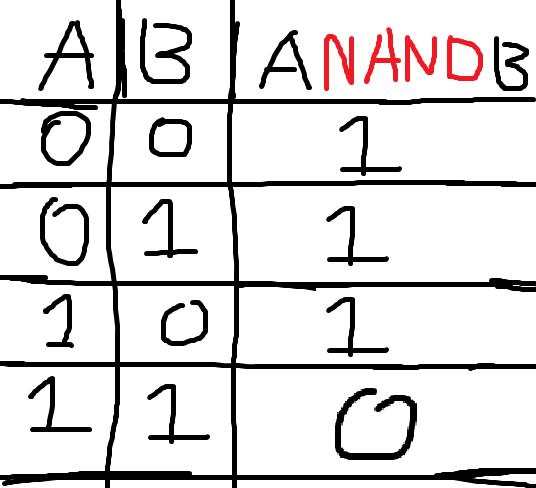 A B A NAND B
0 0 1
0 1 1
1 0 1
1 1 0